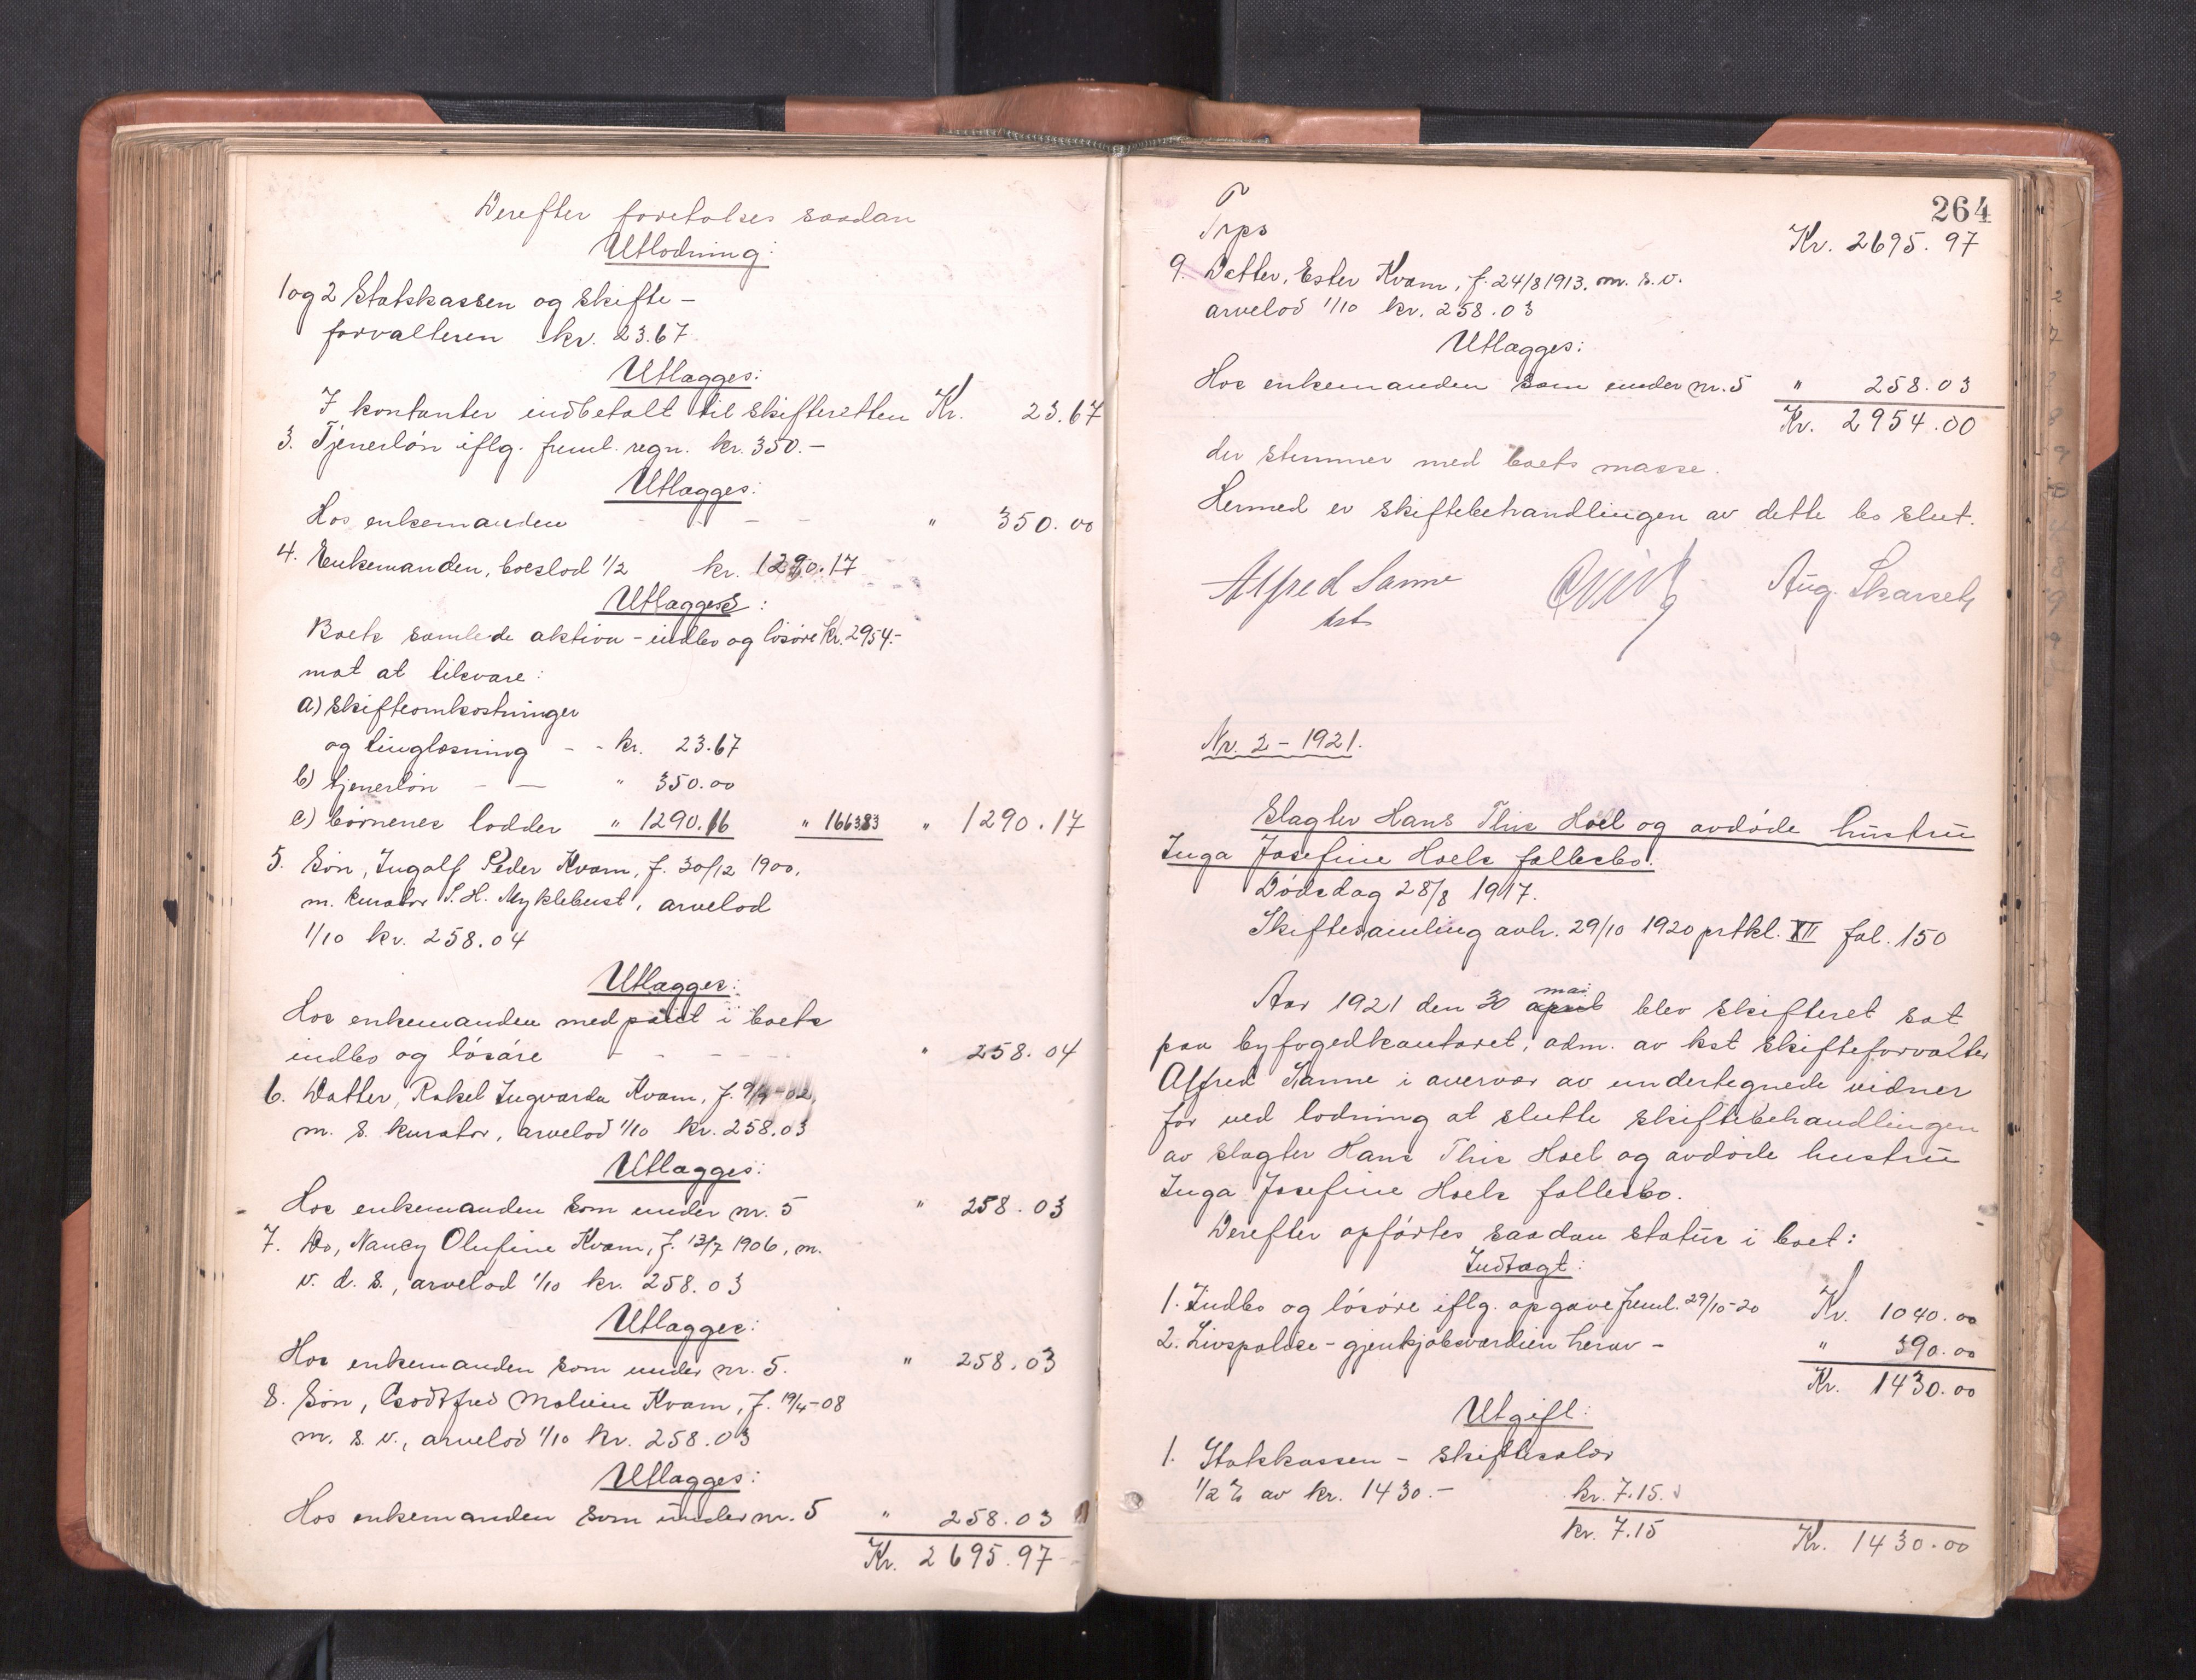 Derefter foretokes saadan
Utlodning:
1 og 2 Statskassen og skifte-
forvalteren kr. 23.67
Utlægges:
I kontanter indbetalt til skifteretten Kr. 23.67
3. Tjenerløn iflg. freml. regn. kr. 350.-
Utlægges:
Hos enkemanden - - - " 350.00
4. Enkemanden, boeslod 1/2 kr. 1290.17
Utlægges:
Boets samlede aktiva - indbo og løsøre kr. 2954.-
mot at tilsvare:
a) skifteomkostninger
og tinglæsning - - kr. 23.67
b) tjenerløn - - " 350.00
c) børnenes lodder " 1290.16 " 1663.83 " 1290.17
5. Søn, Ingolf Peder Kvam, f. 30/12 1900,
m. kurator S. H. Myklebust, arvelod
1/10 kr. 258.04
Utlægges:
Hos enkemanden med pant i boets
indbo og løsøre - - - - " 258.04
6. Datter, Rakel Ingvarda Kvam, f. 9/9-02,
m. s. kurator, arvelod 1/10 kr. 258.03
Utlægges:
Hos enkemanden som under nr. 5 " 258.03
7. Do, Nancy Olufine Kvam, f. 13/7 1906, m.
v. d. s., arvelod 1/10 kr. 258.03
Utlægges:
Hos enkemanden som under nr. 5. " 258.03
8. Søn, Godtfred Molvin Kvam, f. 19/4-08
m. s. v., arvelod 1/10 kr. 258.03
Utlægges:
Hos enkemanden som under nr. 5 " 258.03
Kr. 2695.97
264
Trps Kr. 2695.97
9. Datter, Ester Kvam, f. 24/8 1913. m. s. v.
arvelod 1/10 kr. 258.03
Utlægges:
Hos enkemanden som under nr. 5 " 258.03
Kr. 2954.00
der stemmer med boets masse.
Hermed er skiftebehandlingen av dette bo slut.
Alfred Sanne Aug. Skarseth
kst
Nr. 2 - 1921.
Slagter Hans This Hoel og avdøde hustru
Inga Josefine Hoels fællesbo.
Dødsdag 28/8 1917.
Skiftesamling avh. 29/10 1920 prtkl. XII fol. 150
mai
Aar 1921 den 30 april blev skifteret sat
paa byfogedkontoret, adm. av kst skifteforvalter
Alfred Sanne i overvær av undertegnede vidner
for ved lodning at slutte skiftebehandlingen
av slagter Hans This Hoel og avdøde hustru
Inga Josefine Hoels fællesbo.
Derefter opførtes saadan status i boet:
Indtægt:
1. Indbo og løsøre iflg. opgave freml. 29/10-20 Kr. 1040.00
2. Livspolise - gjenkjøbsværdien herav - " 390.00
Kr. 1430.00
Utgift:
1. Statskassen - skiftesalær
1/2 % av kr. 1430.- kr. 7.15.
kr. 7.15 Kr. 1430.00